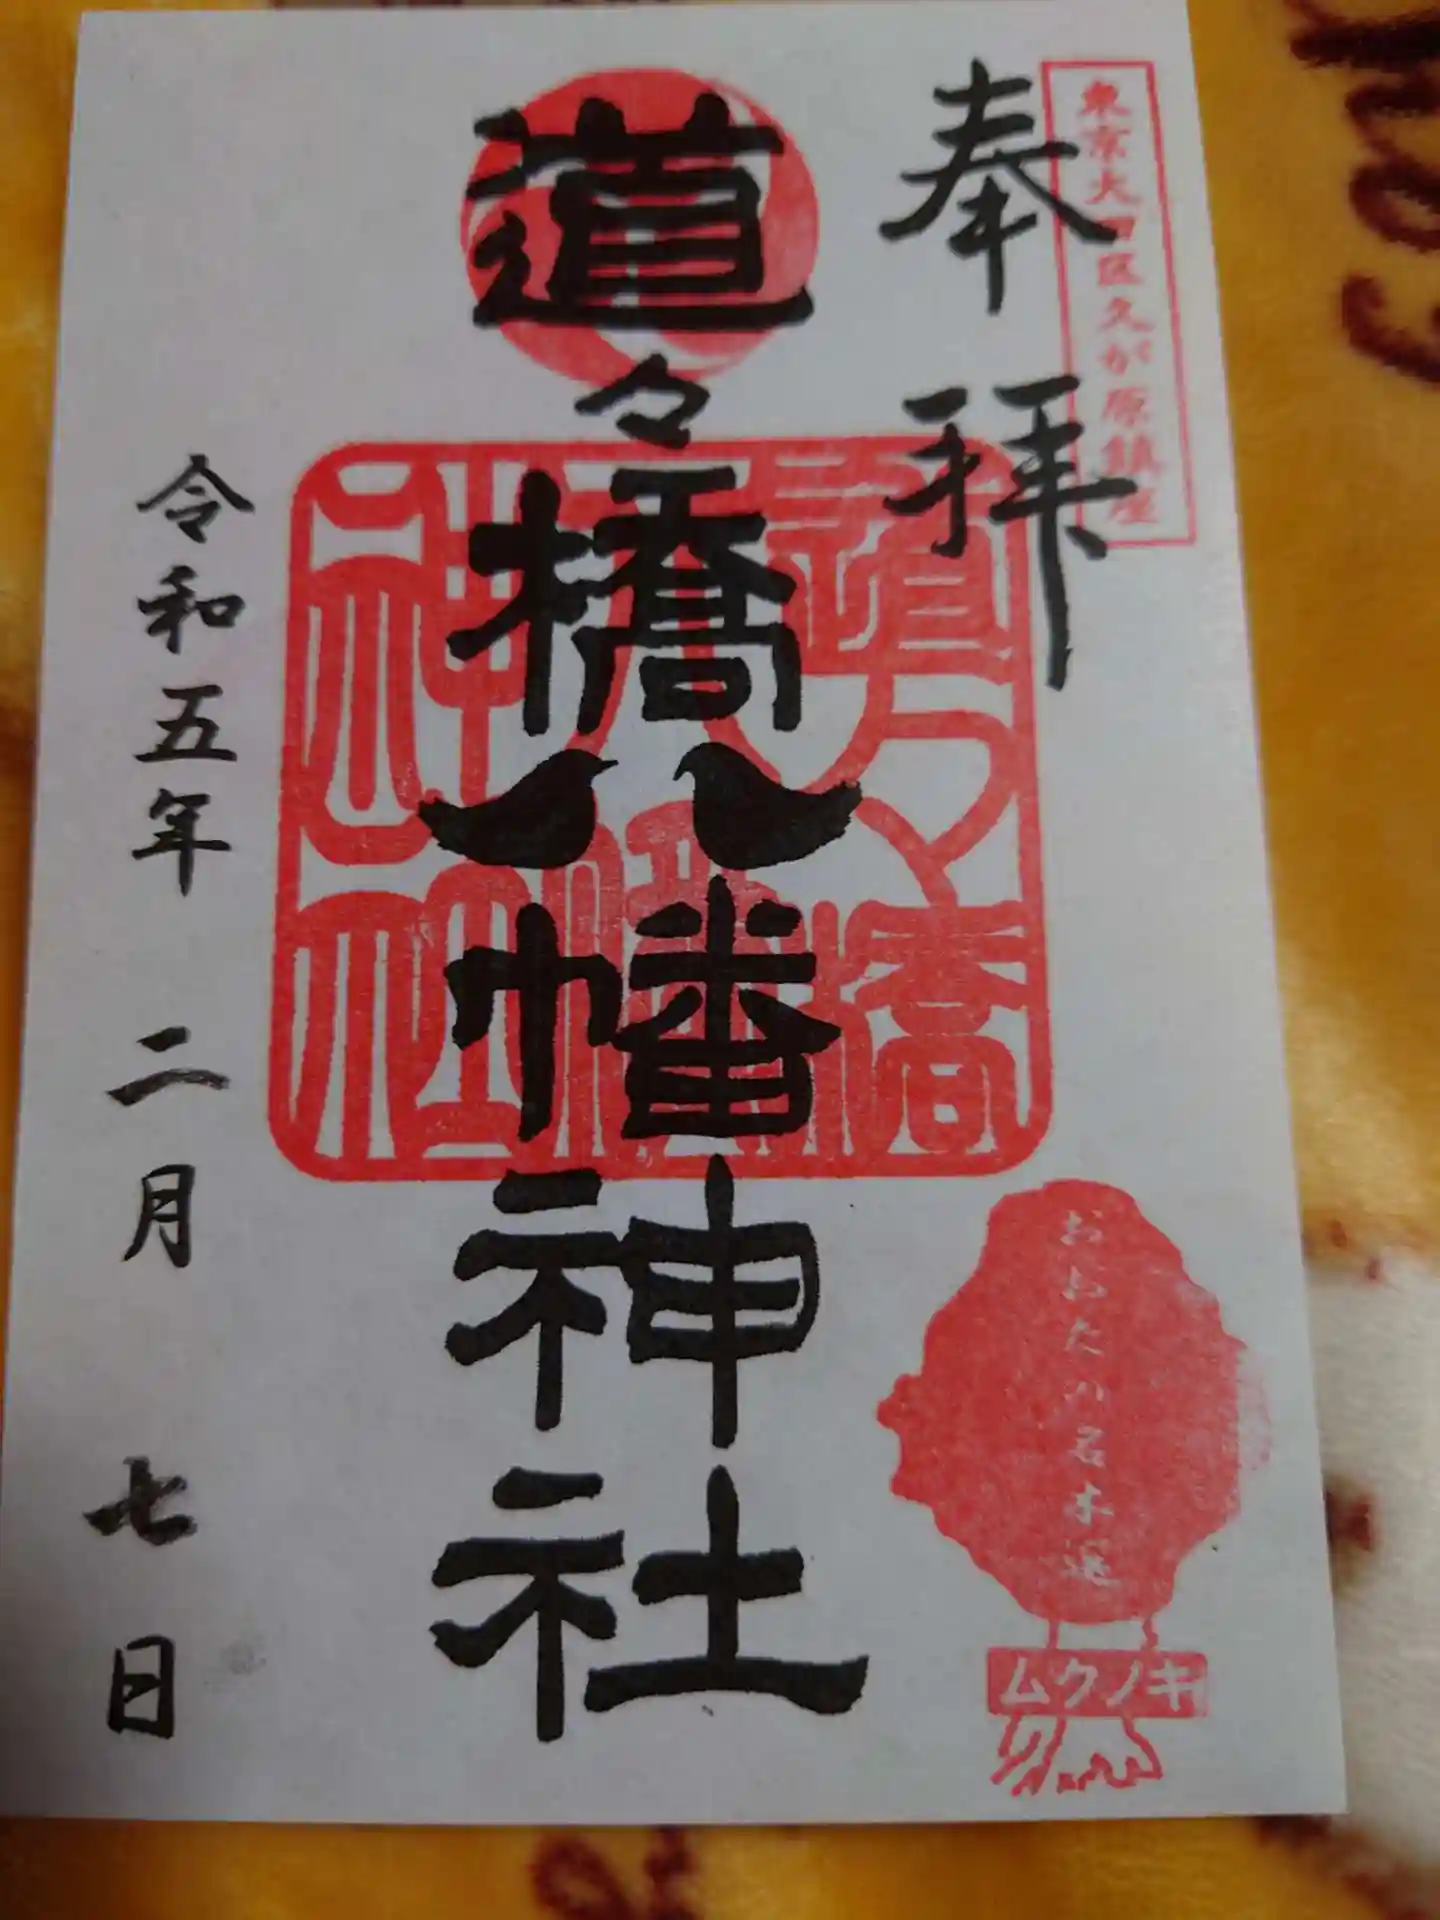 東京大田区久が原鎮座
奉拝
道々橋八幡神社
道々橋
八幡
神社
令和五年 二月 七日
おおたの名木選
ムクノキ